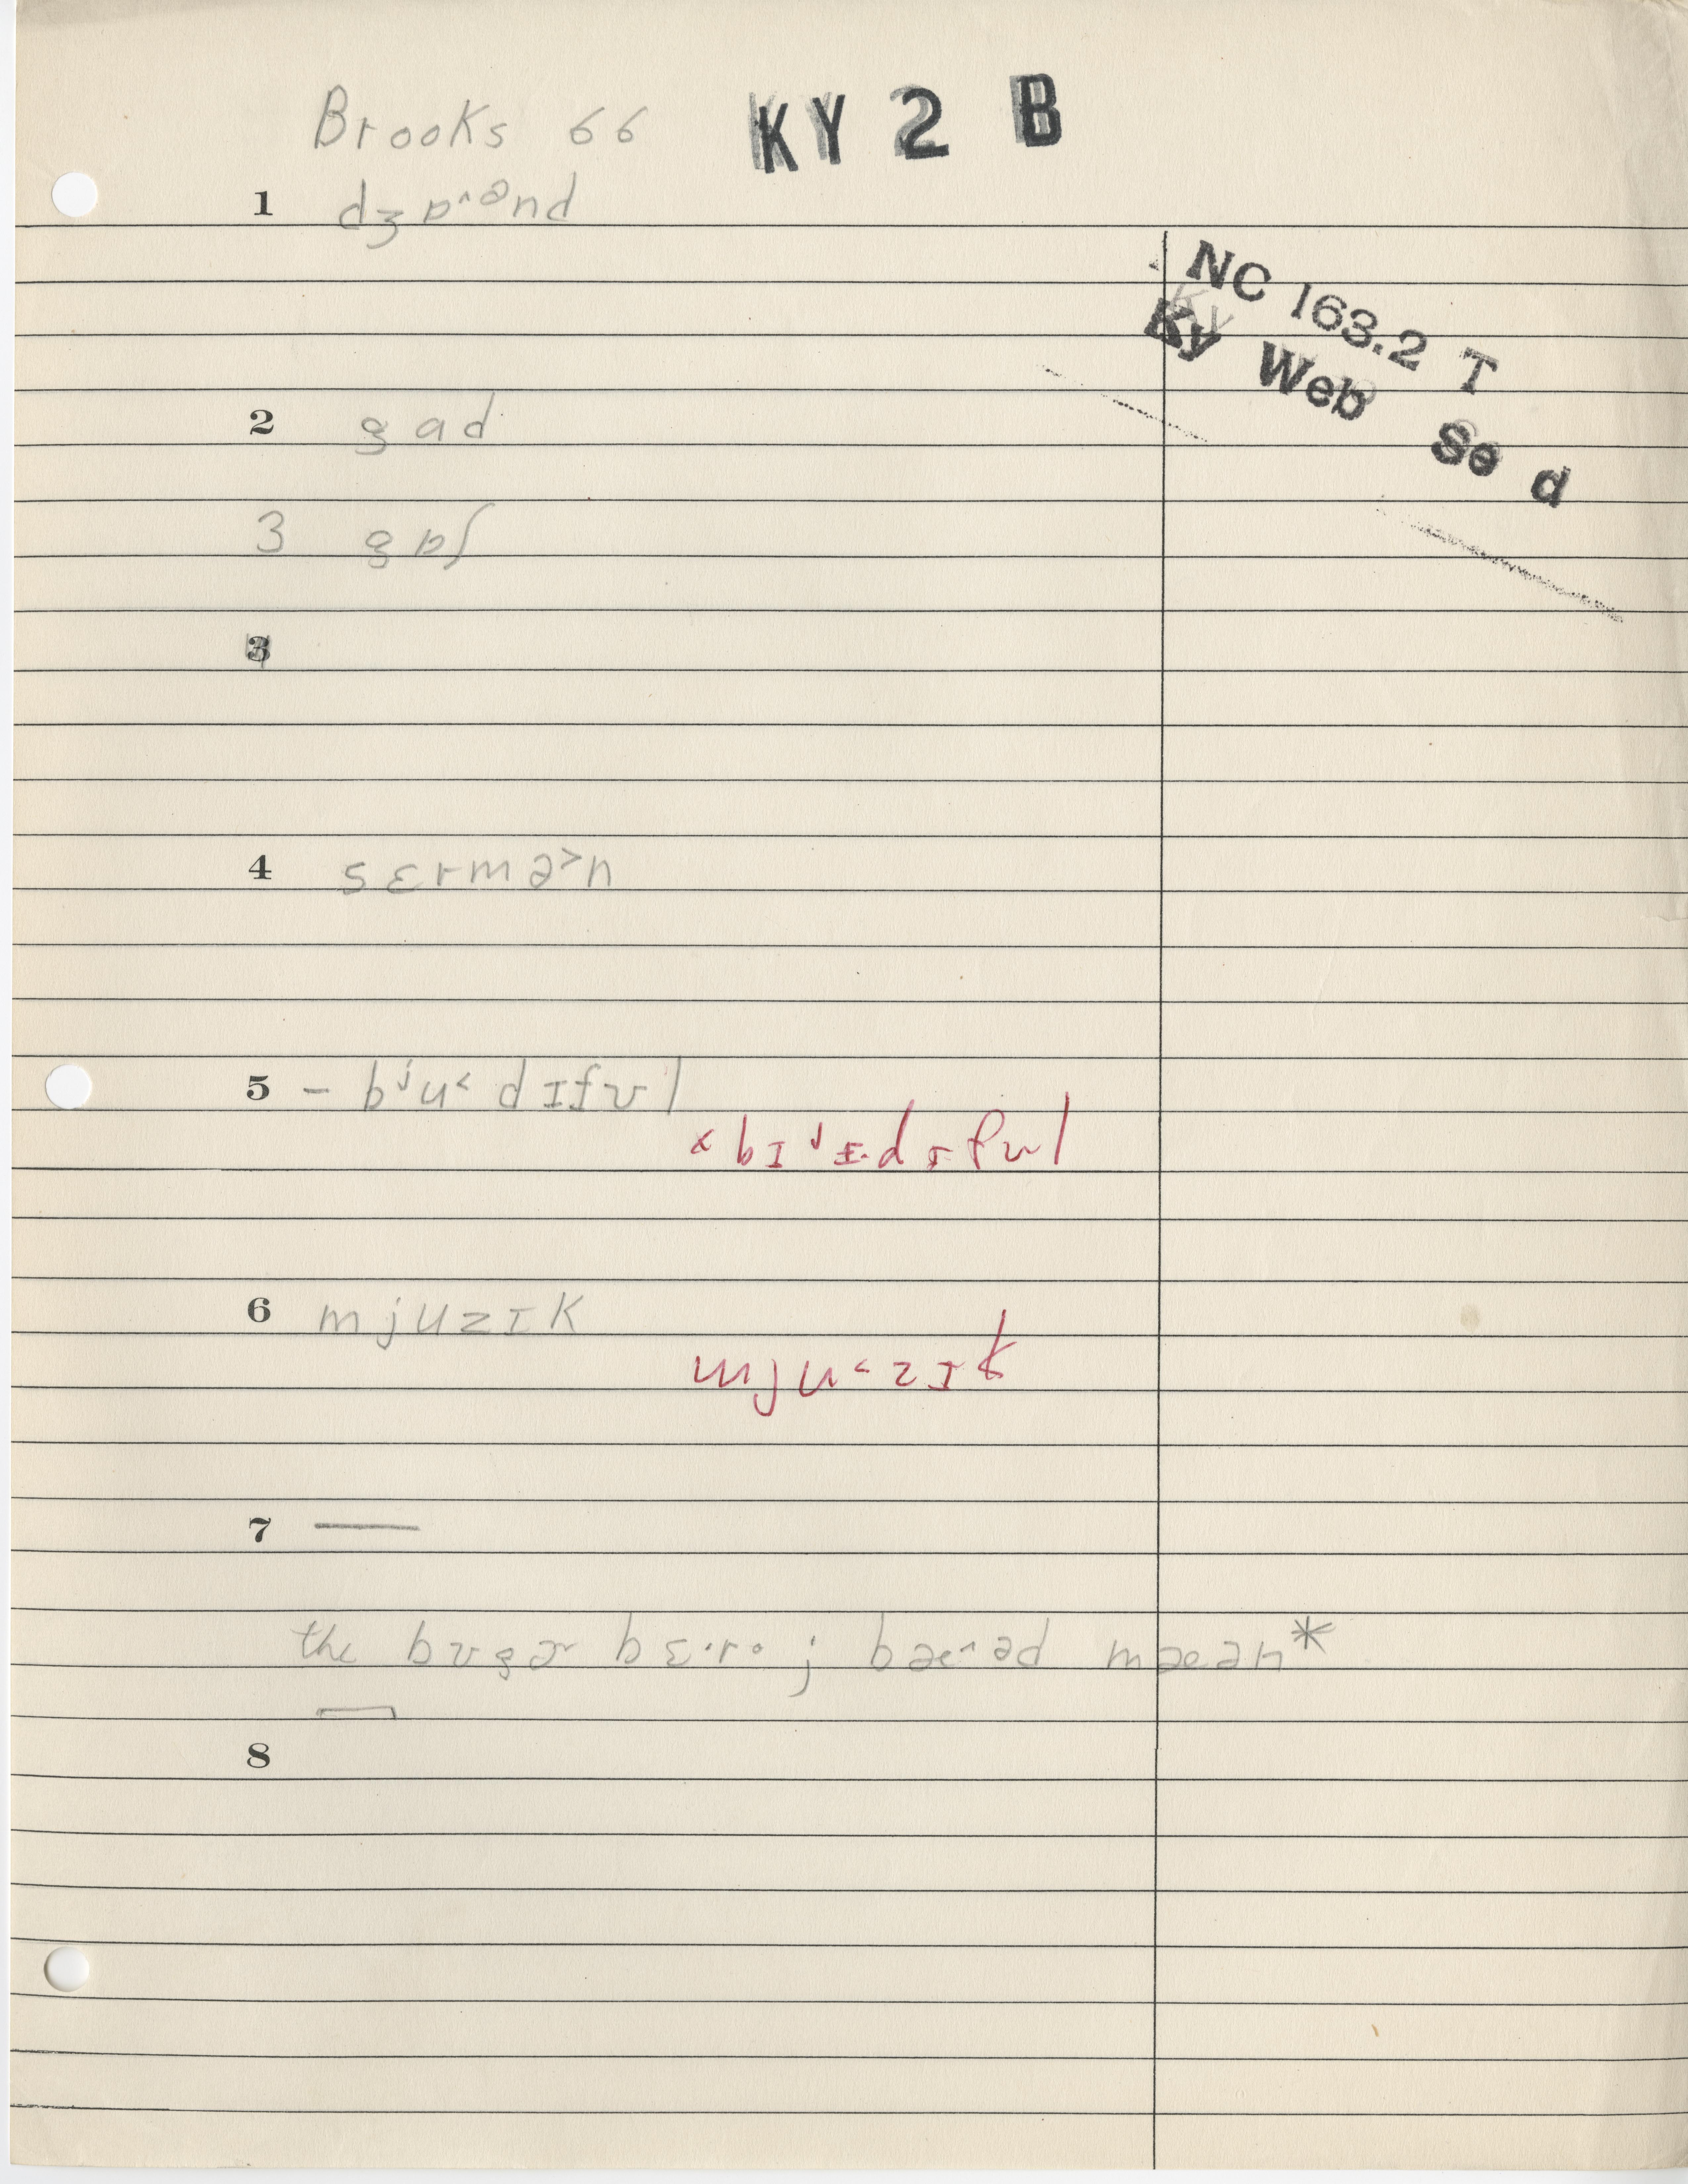 Brooks 66 KY 2 B
1 dʒɒ^ənd
NC 163.2 T
Ky Web Se d
2 gad
3 gɒʃ
4 sɛrmə˃n
5 – bʲu˂dɪfʊl
˂bɪʲᵻ·dɪfʊl
6 mjuzɪk
mju˂zɪk
7 —
the bʊgɚ bɛ·r° ; bæ^əd mæən*
8